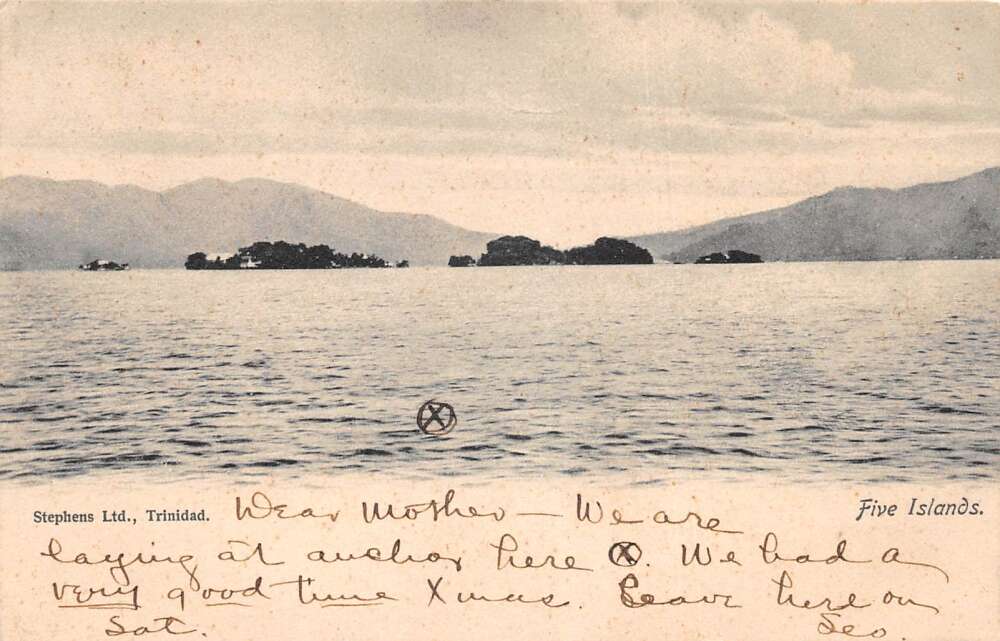 Stephens Ltd., Trinidad.
Five Islands.
Dear Mother – We are
laying at anchor here ⓧ. We had a
very good time Xmas. Leave here on
Sat. Geo.